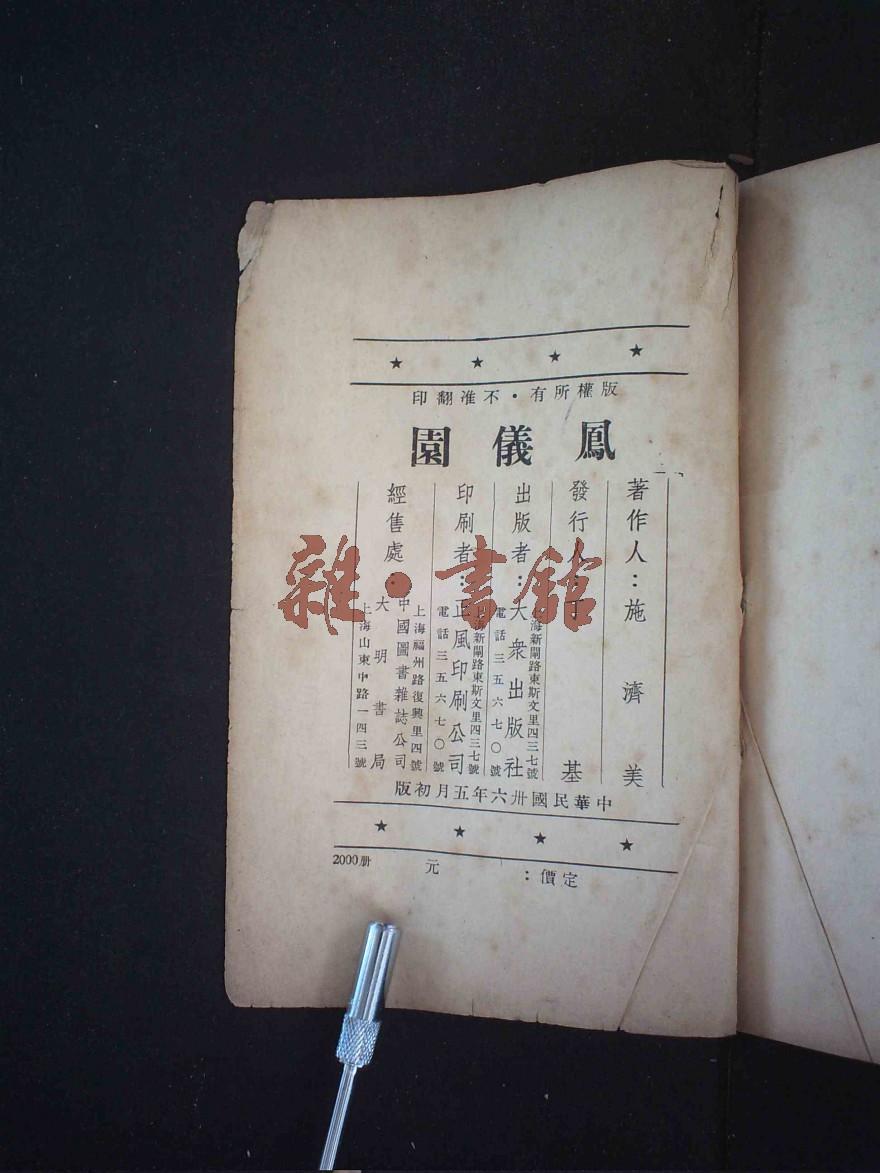 版權所有・不准翻印
鳳儀園
著作人：施濟美
發行人：丁基
出版者：大衆出版社
海新閘路東斯文里四三七號
電話三五六七〇號
印刷者：正風印刷公司
上海新閘路東斯文里四三七號
電話三五六七〇號
經售處：
中國圖書雜誌公司
上海福州路復興里四號
大明書局
上海山東中路一四三號
中華民國卅六年五月初版
定價： 元
2000册
雜・書館